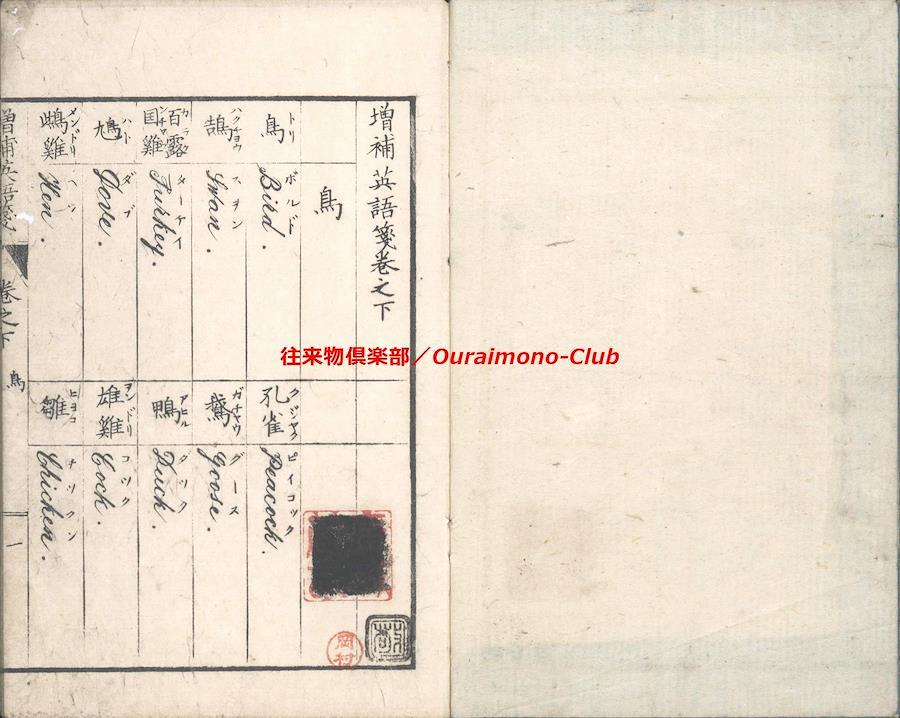 増補英語箋卷之下
鳥
鳥 トリ
Bird. ボルド
孔雀 クジヤク
Peacock. ピイコック
鵠 ハクチヨウ
Swan. スヲン
鵞 ガチヤウ
Goose. グース
百露国雞
Turkey. ターケイ
鴨 アヒル
Duck. ダック
鳩 ハト
Dove. ダブ
雄雞 ヲンドリ
Cock. コック
雌雞 メンドリ
Hen. ヘン
雛 ヒヨコ
Chicken. チックン
増補英語箋
卷之下
鳥
一
岡村
往来物倶楽部／Ouraimono-Club